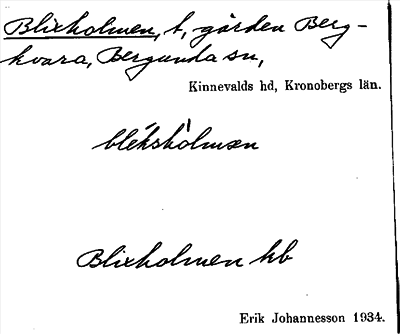 Blixholmen, t, gården Berg-
kvara, Bergunda sn,
Kinnevalds hd, Kronobergs län.
blékshòlmən
Blixholmen hb
Erik Johannesson 1934.